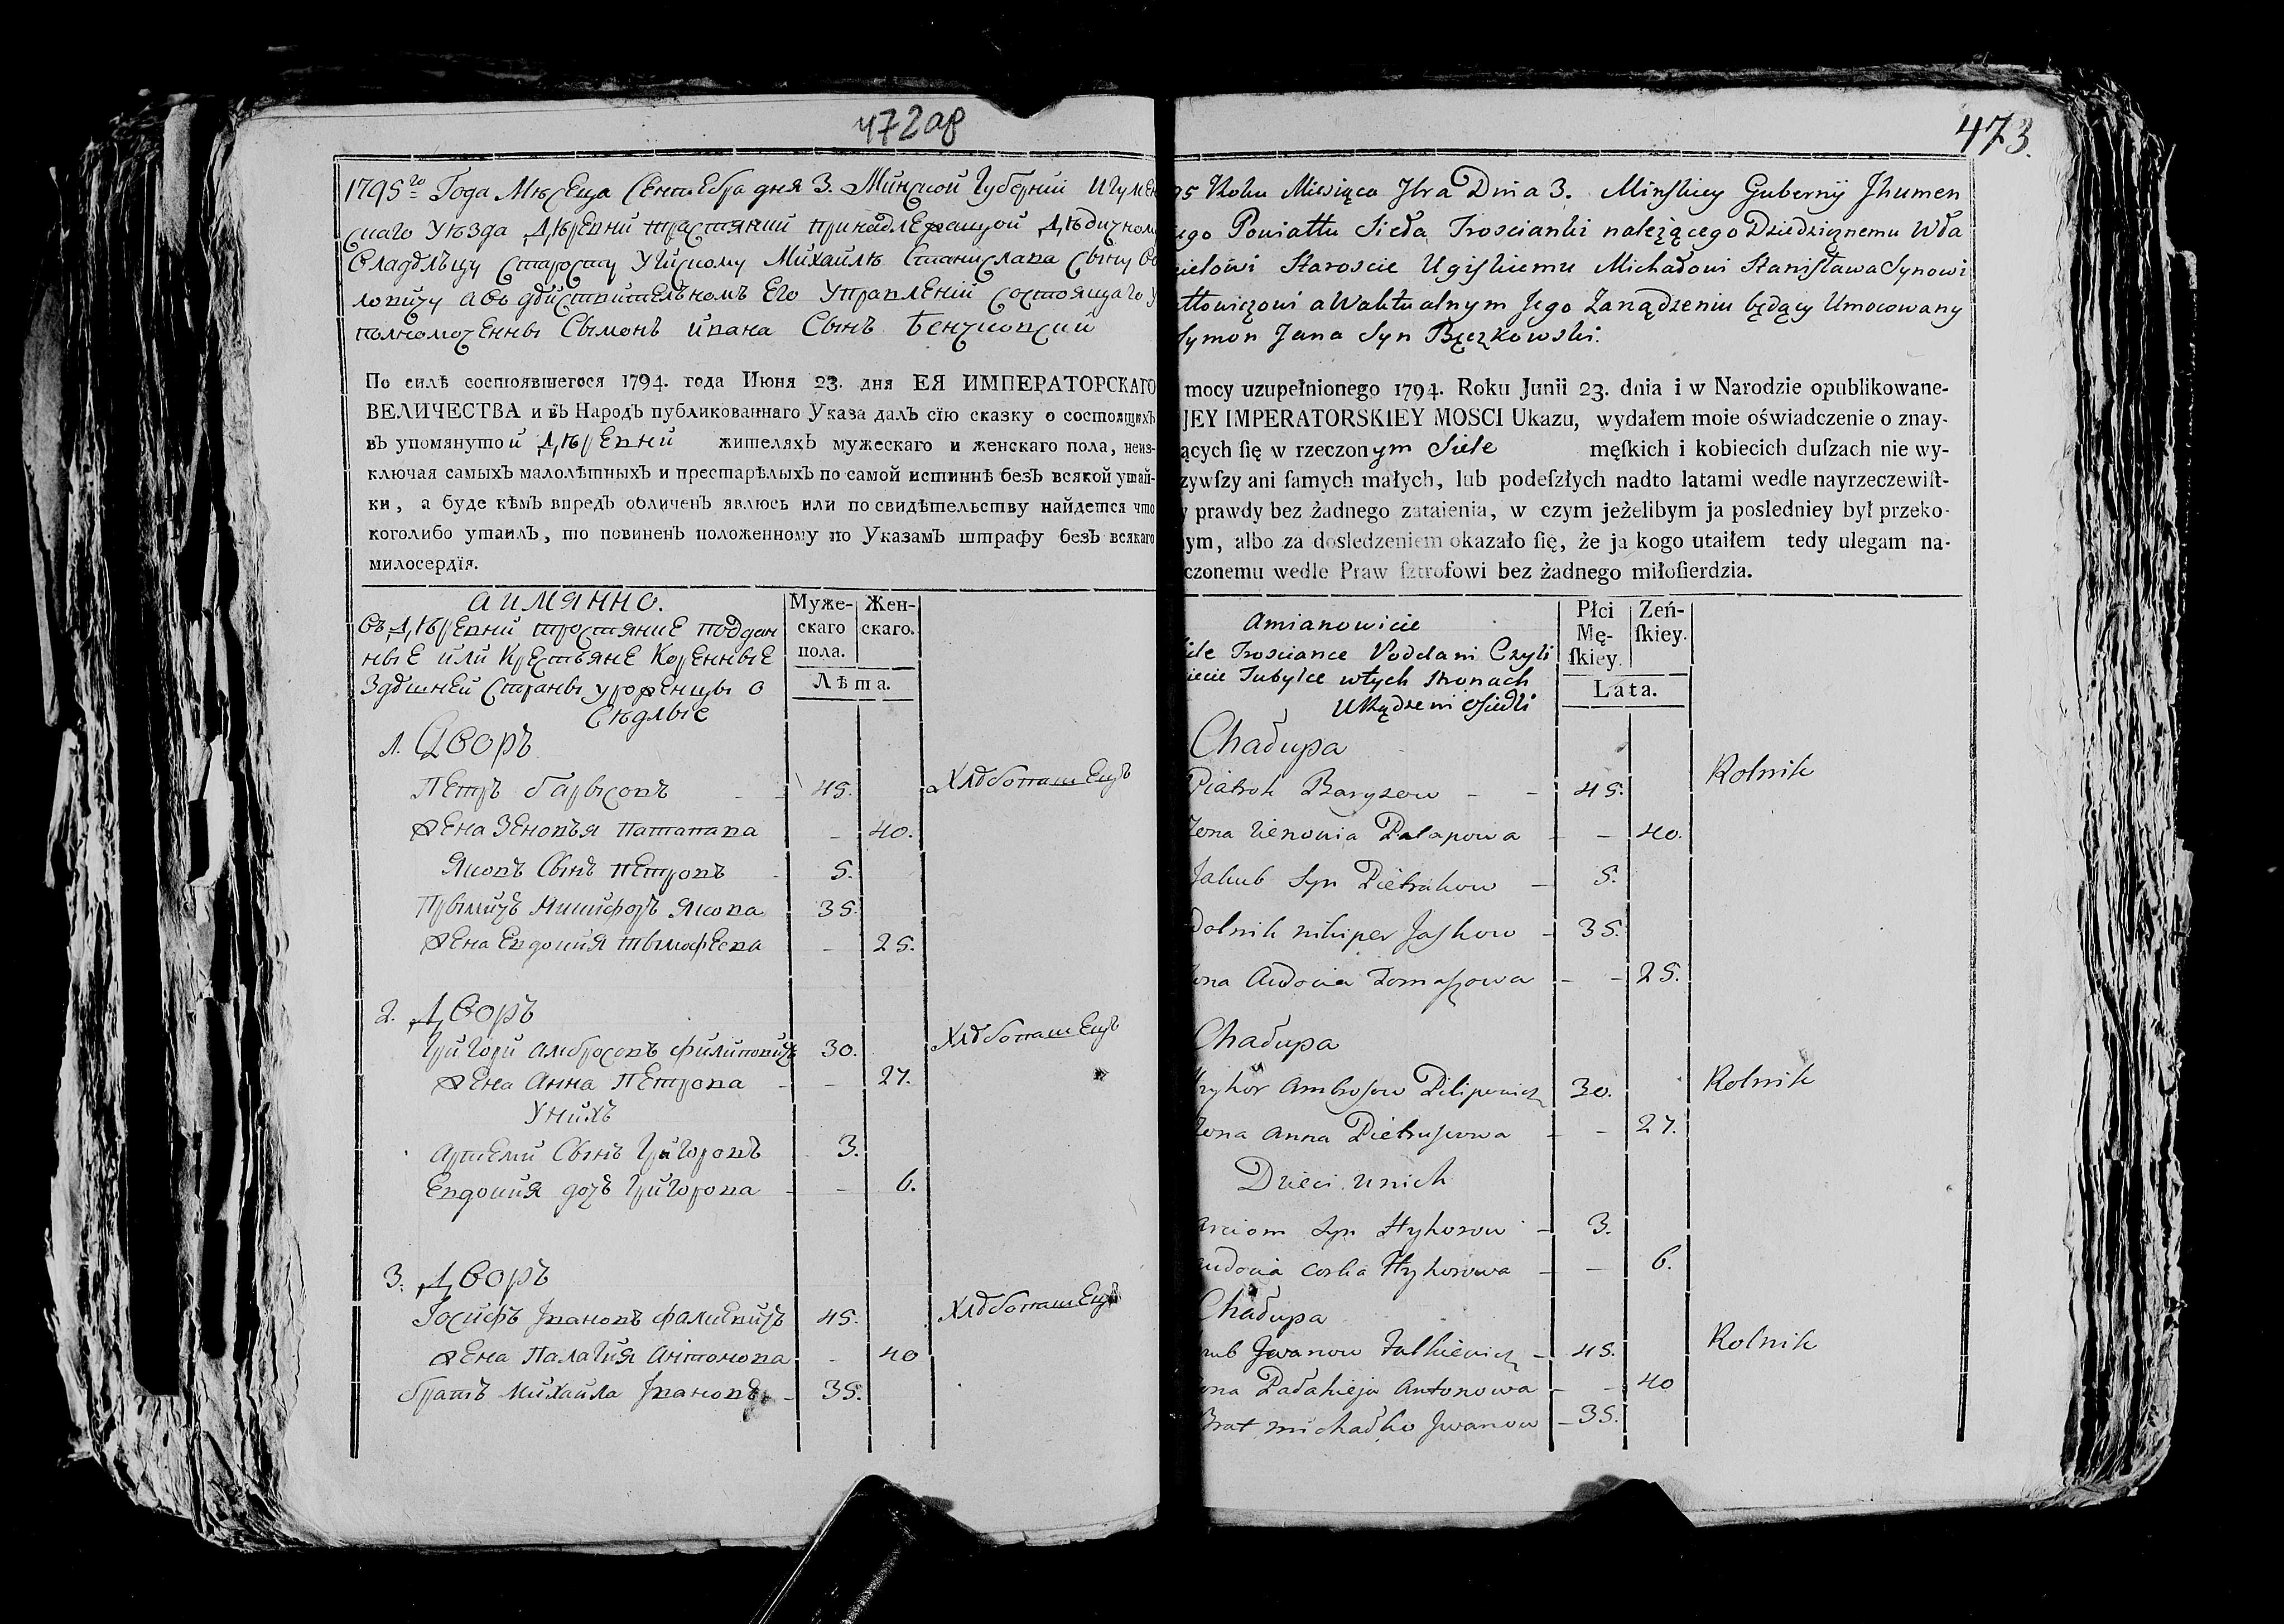 472об
1795го Года Мѣсеца Сентебра дня 3. Минской Губерніи Игумен
скаго Уѣзда Дѣревни тростянки принадлежащой Дѣдичному
Владѣльцу Старосту Угискому Михайлѣ Станислава Сыну
ловичу а во дѣиствительномъ Его Управленіи состоящаго у
полномоченны Сымонъ ивана Сынъ Бенчковский
По силѣ состоявшегося 1794. года Июня 23. дня ЕЯ ИМПЕРАТОРСКАГО
ВЕЛИЧЕСТВА и вЪ НародЪ публикованнаго Указа далЪ сїю сказку о состоящихЪ
вЪ упомянутой Дѣревни жителяхЪ мужескаго и женскаго пола, неиз-
ключая самыхЪ малолѣтныхЪ и престарѣлыхЪ по самой истиннѣ безЪ всякой утай-
ки, а буде кѣмЪ впредЪ обличенЪ явлюсь или по свидѣтельству найдется что
коголибо утаилЪ, то повиненЪ положенному по УказамЪ штрафу безЪ всякаго
милосердїя.
аимянно.
въ Дѣревни тростянке поддан
ные или Крестьяне Коренные
Здѣшней Страны уроженцы о
Сѣдлые
Муже-
скаго
пола.
Жен-
скаго.
Лѣта.
1. Дворъ
Петръ барысовъ - - 45. Хлѣбопашецъ
жена Зеновъя Патапава - 40.
Яковъ Сынъ Петровъ - 5.
Прымичъ Никифоръ Якова 35.
жена Евдокия тымофеева - 25.
2. Дворъ
Григори амбросовъ филиповичъ 30. Хлѣбопашецъ
жена Анна Петрова - - 27.
У нихъ
Артеми Сынъ Григоровъ 3.
Евдокия дочъ Григорова - - 6.
3. Дворъ
Іосифъ Івановъ фалкевичъ 45. Хлѣбопашецъ
жена Палагия Антонова - 40
братъ Михайла Івановъ - 35.
473.
95 Roku Miesiąca 7bra Dnia 3. Minskiey Gubernij Jhumen
ego Powiattu Sieła Troscianki należącego Dziedzicznemu Wła
cielowi Staroscie Ugiskiemu Michałowi Stanisława Synowi
tłowiczowi a Waktualnym Jego Zarządzeniu będący Umocowany
Symon Jana Syn Bęczkowski.
mocy uzupełnionego 1794. Roku Junii 23. dnia i w Narodzie opublikowane-
JEY IMPERATORSKIEY MOSCI Ukazu, wydałem moie oświadczenie o znay-
ących ſię w rzeczonym Siele męſkich i kobiecich duſzach nie wy-
zywſzy ani ſamych małych, lub podeſzłych nadto latami wedle nayrzeczewiſt-
y prawdy bez żadnego zataienia, w czym jeżelibym ja posledniey był przeko-
ym, albo za dosledzeniem okazało ſię, że ja kogo utaiłem tedy ulegam na-
czonemu wedle Praw ſztrofowi bez żadnego miłoſierdzia.
Amianowicie
iele Trosciance Poddani Czyli
iecie Tubylce wtych stronach
Urządzeni osiedli
Płci
Mę-
ſkiey.
Żeń-
ſkiey.
Lata.
Chałupa
Piatrok Barysow - - 45. Rolnik
Zona Zienowia Patapowa - - 40.
Jakub Syn Pietrukow - 5.
Dolnik nikiper Jaskow - 35.
ona Audocia Tomaszowa - - 25.
Chałupa
Hryhor Ambrosow Pilipowicz 30. Rolnik
Zona Anna Pietrusiowa - - 27.
Dzieci unich
Arciom Syn Hryhorow - 3.
Audocia corka Hryhorowa - - 6.
Chałupa
Jwanow Falkiewicz - 45. Rolnik
ona Pałahieja Antonowa - - 40
Brat michałko Jwanow - 35.